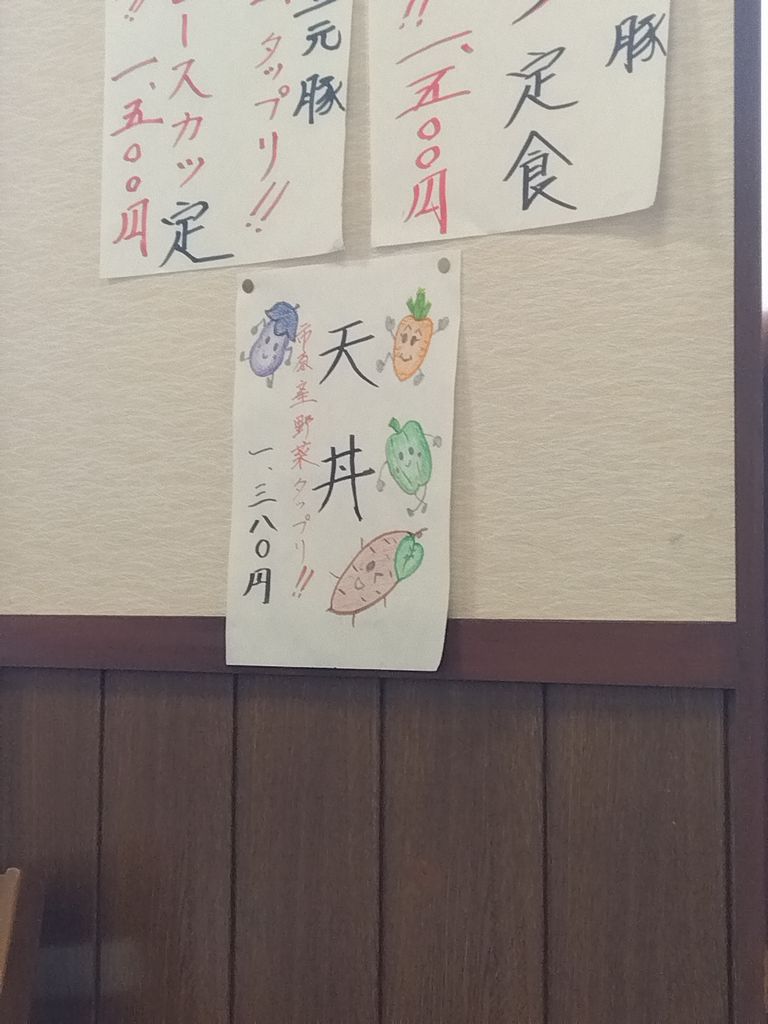 豚
定食
!! 一、五〇〇円
元豚
タップリ!!
ースカツ定
!! 一、五〇〇円
天丼
市原産野菜タップリ!!
一、三八〇円